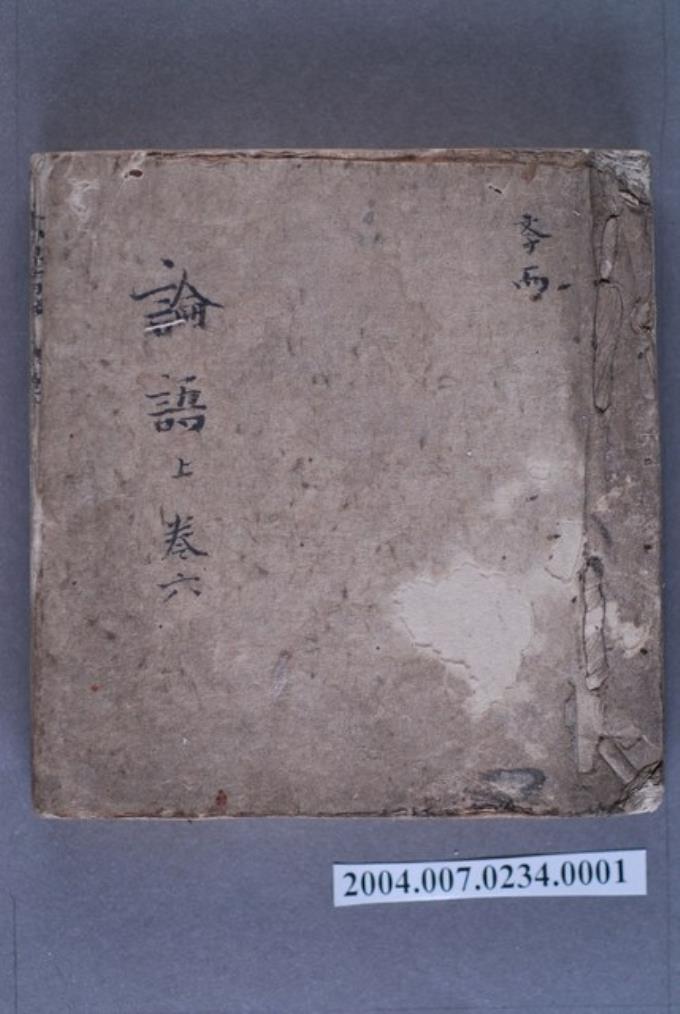 論語上卷六
2004.007.0234.0001